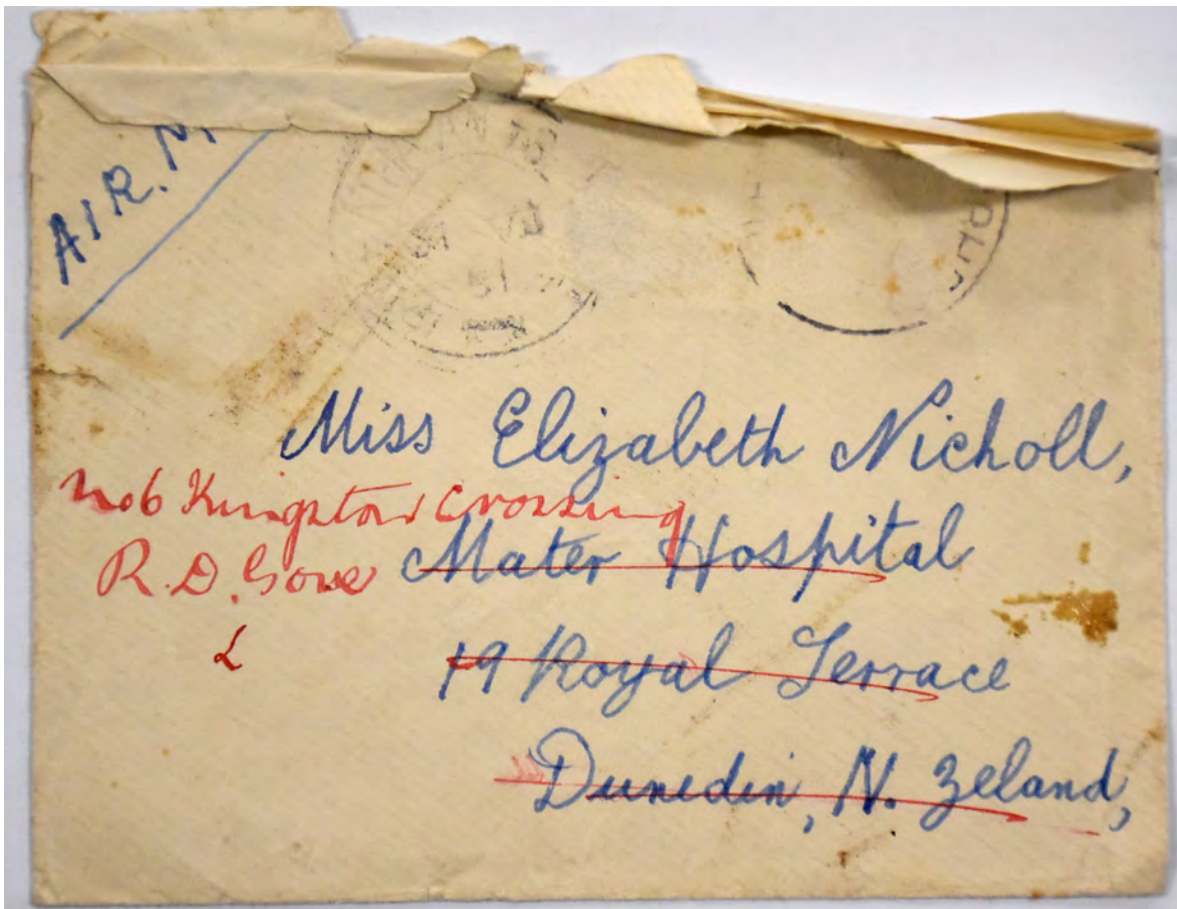 AIR. M
Miss Elizabeth Nicholl,
No6 Kingston Crossing
R.D. Gore
Mater Hospital
19 Royal Terrace
Dunedin, N. Zeland,